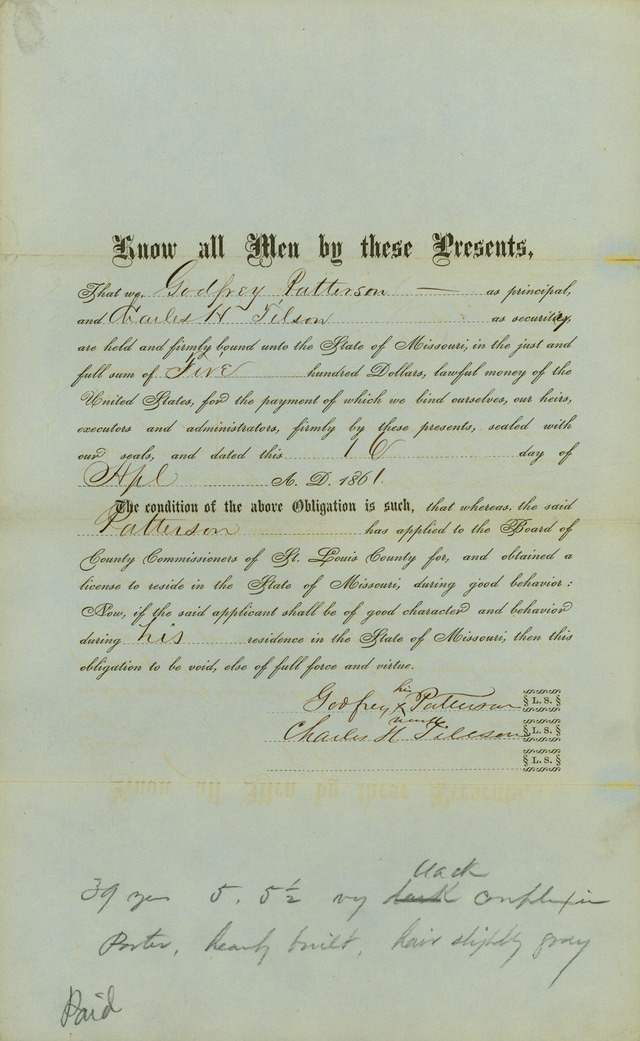 Know all Men by these Presents,
That we, Godfrey Patterson — as principal,
and Charles H Tilson as security,
are held and firmly bound unto the State of Missouri, in the just and
full sum of Five hundred Dollars, lawful money of the
United States, for the payment of which we bind ourselves, our heirs,
executors and administrators, firmly by these presents, sealed with
our seals, and dated this 16 day of
Apl A. D. 1861.
The condition of the above Obligation is such, that whereas, the said
Patterson has applied to the Board of
County Commissioners of St. Louis County for, and obtained a
license to reside in the State of Missouri, during good behavior:
Now, if the said applicant shall be of good character and behavior
during his residence in the State of Missouri, then this
obligation to be void, else of full force and virtue.
his
Godfrey X Patterson L. S.
mark
Charles H Tilleson L. S.
L. S.
black
39 yrs 5. 5½ very dark complexion
Porter, heavy built, hair slightly gray
Paid